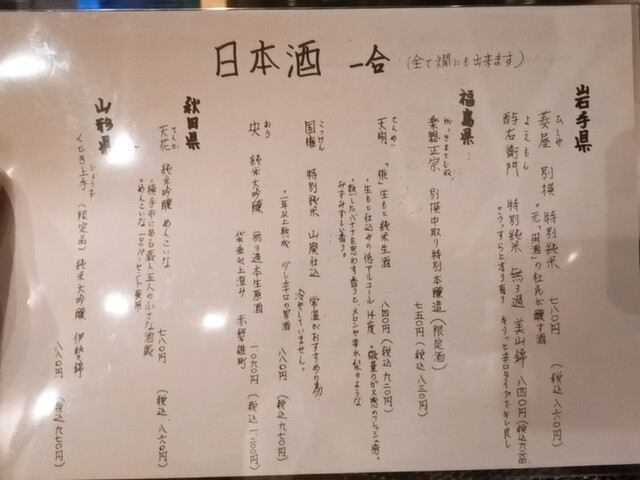 日本酒 一合 (全て燗にも出来ます)
岩手県
ひしや
菱屋 別撰 特別純米 七八〇円 (税込 八六〇円)
・元「月の輪」の杜氏が醸す酒
よえもん
酉与右衛門 特別純米 無ろ過 美山錦 八四〇円(税込九二〇円)
・うっすらとオリ有り キリッと辛口タイプでキレ良し
福島県
がっきまさむね
楽器正宗 別撰中取り特別本醸造(限定酒)
七五〇円(税込八三〇円)
てんめい
天明 「焔」生もと純米生酒 八四〇円(税込九二〇円)
・生もと仕込みの低アルコール 14度 ・微量のガス感のフレッシュ感。
・熟したバナナを思わす香りと、メロンや幸水梨のような
みずみずしい香り。
こっけん
国権 特別純米 山廃仕込 常温がおすすめの為、
冷やしていません。
・一年以上熟成 少し辛口の男酒 八八〇円(税込九七〇円)
おり
央 純米大吟醸 無ろ過本生原酒 一〇九〇円(税込一二〇〇円)
袋垂れ上澄み 赤磐雄町
秋田県
てんか
天花 純米吟醸 めんこいな 七八〇円 (税込 八六〇円)
・横手市にある蔵人五人の小さな酒蔵
・めんこいな一〇〇パーセント使用
山形県
じょうず
くどき上手 (限定品) 純米大吟醸 伊勢錦
八八〇円 (税込九七〇円)